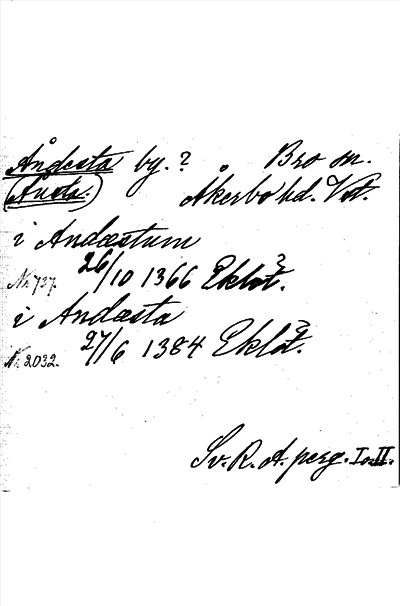 Åndesta by. ? Bro sn.
(Ånsta.) Åkerbo hd. Vst.
i Andæstum
Nr 737. 26/10 1366 Eklöt?.
i Andæsta
Nr 2032. 27/6 1384 Eklöt?.
Sv. R. A. perg. I o. II.